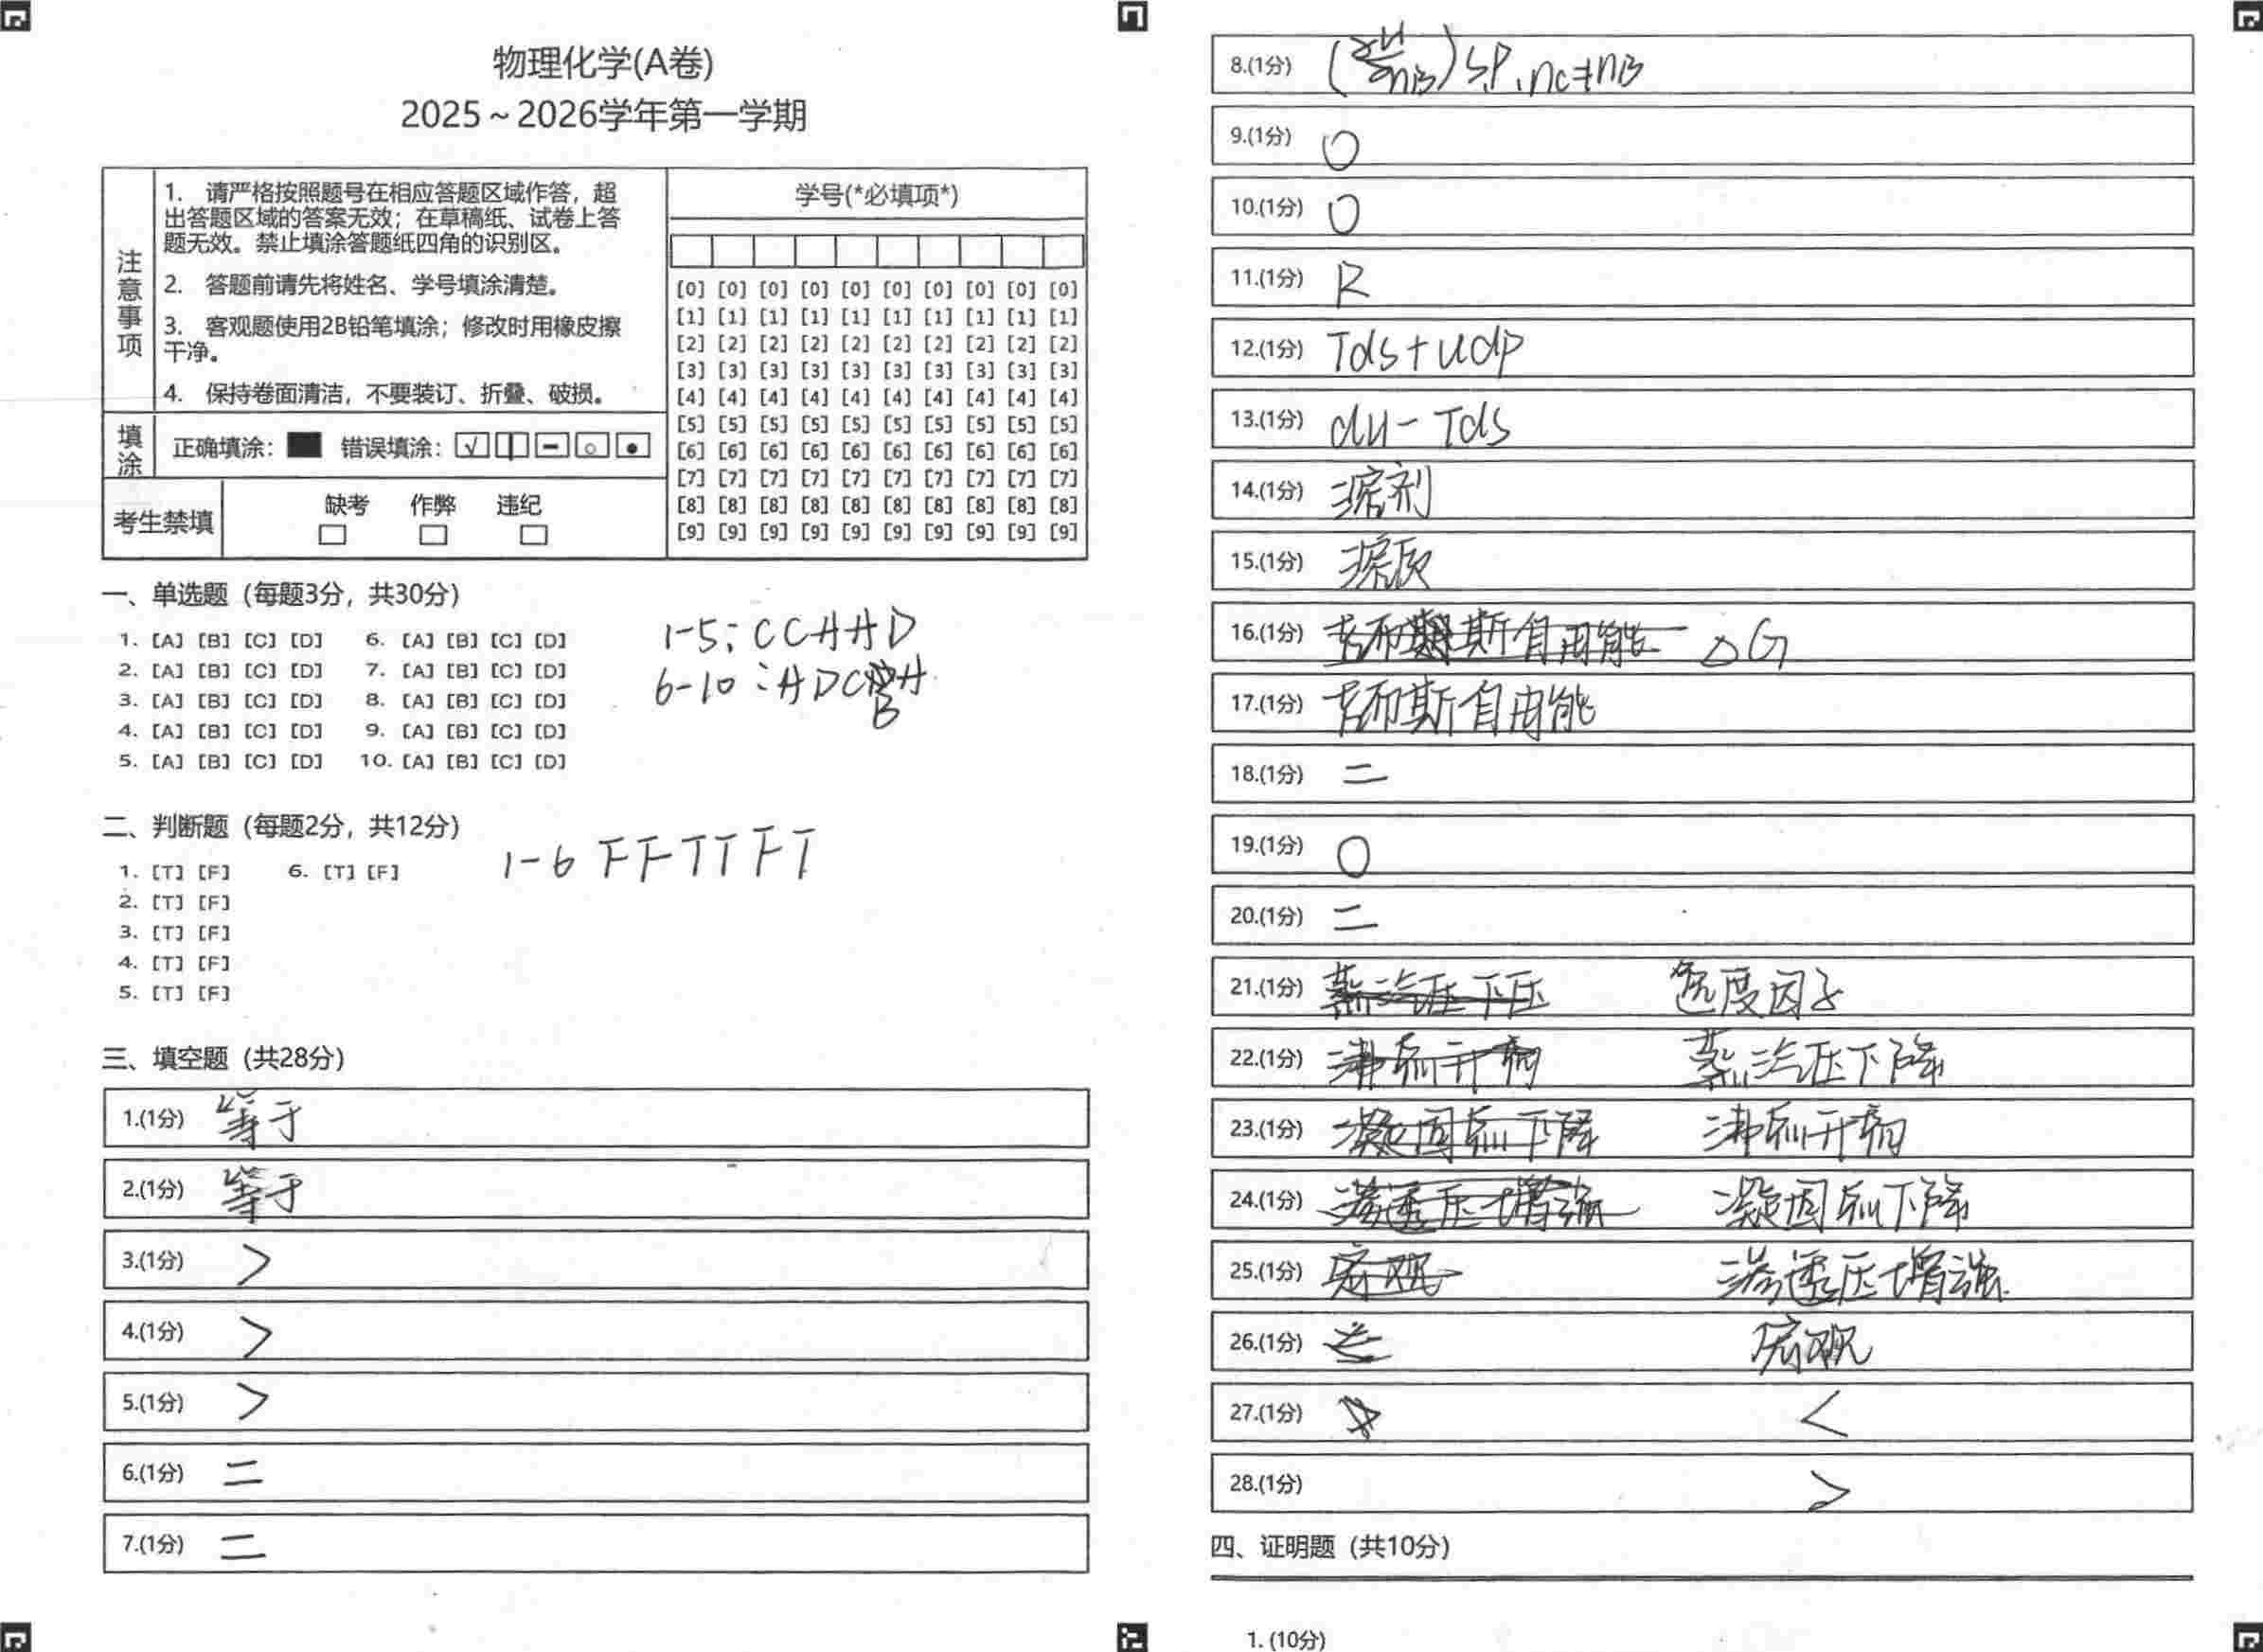 物理化学(A卷)
2025～2026学年第一学期
注意事项
1. 请严格按照题号在相应答题区域作答，超
出答题区域的答案无效；在草稿纸、试卷上答
题无效。禁止填涂答题纸四角的识别区。
2. 答题前请先将姓名、学号填涂清楚。
3. 客观题使用2B铅笔填涂；修改时用橡皮擦
干净。
4. 保持卷面清洁，不要装订、折叠、破损。
填涂
正确填涂： 错误填涂：
考生禁填
缺考 作弊 违纪
学号(*必填项*)
[0] [0] [0] [0] [0] [0] [0] [0] [0] [0]
[1] [1] [1] [1] [1] [1] [1] [1] [1] [1]
[2] [2] [2] [2] [2] [2] [2] [2] [2] [2]
[3] [3] [3] [3] [3] [3] [3] [3] [3] [3]
[4] [4] [4] [4] [4] [4] [4] [4] [4] [4]
[5] [5] [5] [5] [5] [5] [5] [5] [5] [5]
[6] [6] [6] [6] [6] [6] [6] [6] [6] [6]
[7] [7] [7] [7] [7] [7] [7] [7] [7] [7]
[8] [8] [8] [8] [8] [8] [8] [8] [8] [8]
[9] [9] [9] [9] [9] [9] [9] [9] [9] [9]
一、单选题（每题3分，共30分）
1. [A] [B] [C] [D] 6. [A] [B] [C] [D]
2. [A] [B] [C] [D] 7. [A] [B] [C] [D]
3. [A] [B] [C] [D] 8. [A] [B] [C] [D]
4. [A] [B] [C] [D] 9. [A] [B] [C] [D]
5. [A] [B] [C] [D] 10. [A] [B] [C] [D]
1-5: CCAAD
6-10: ADCBA
二、判断题（每题2分，共12分）
1. [T] [F] 6. [T] [F]
2. [T] [F]
3. [T] [F]
4. [T] [F]
5. [T] [F]
1-6 FFTTFT
三、填空题（共28分）
1.(1分) 等于
2.(1分) 等于
3.(1分) >
4.(1分) >
5.(1分) >
6.(1分) =
7.(1分) =
8.(1分) (∂H/∂nB)S,P,nc≠nB
9.(1分) 0
10.(1分) 0
11.(1分) R
12.(1分) Tds+Vdp
13.(1分) dH-Tds
14.(1分) 溶剂
15.(1分) 溶质
16.(1分) 吉布斯自由能 △G
17.(1分) 吉布斯自由能
18.(1分) =
19.(1分) 0
20.(1分) =
21.(1分) 蒸汽压下压 逸度因子
22.(1分) 沸点升高 蒸汽压下降
23.(1分) 凝固点下降 沸点升高
24.(1分) 渗透压增强 凝固点下降
25.(1分) 宏观 渗透压增强
26.(1分) 宏观
27.(1分) <
28.(1分) >
四、证明题（共10分）
1. (10分)